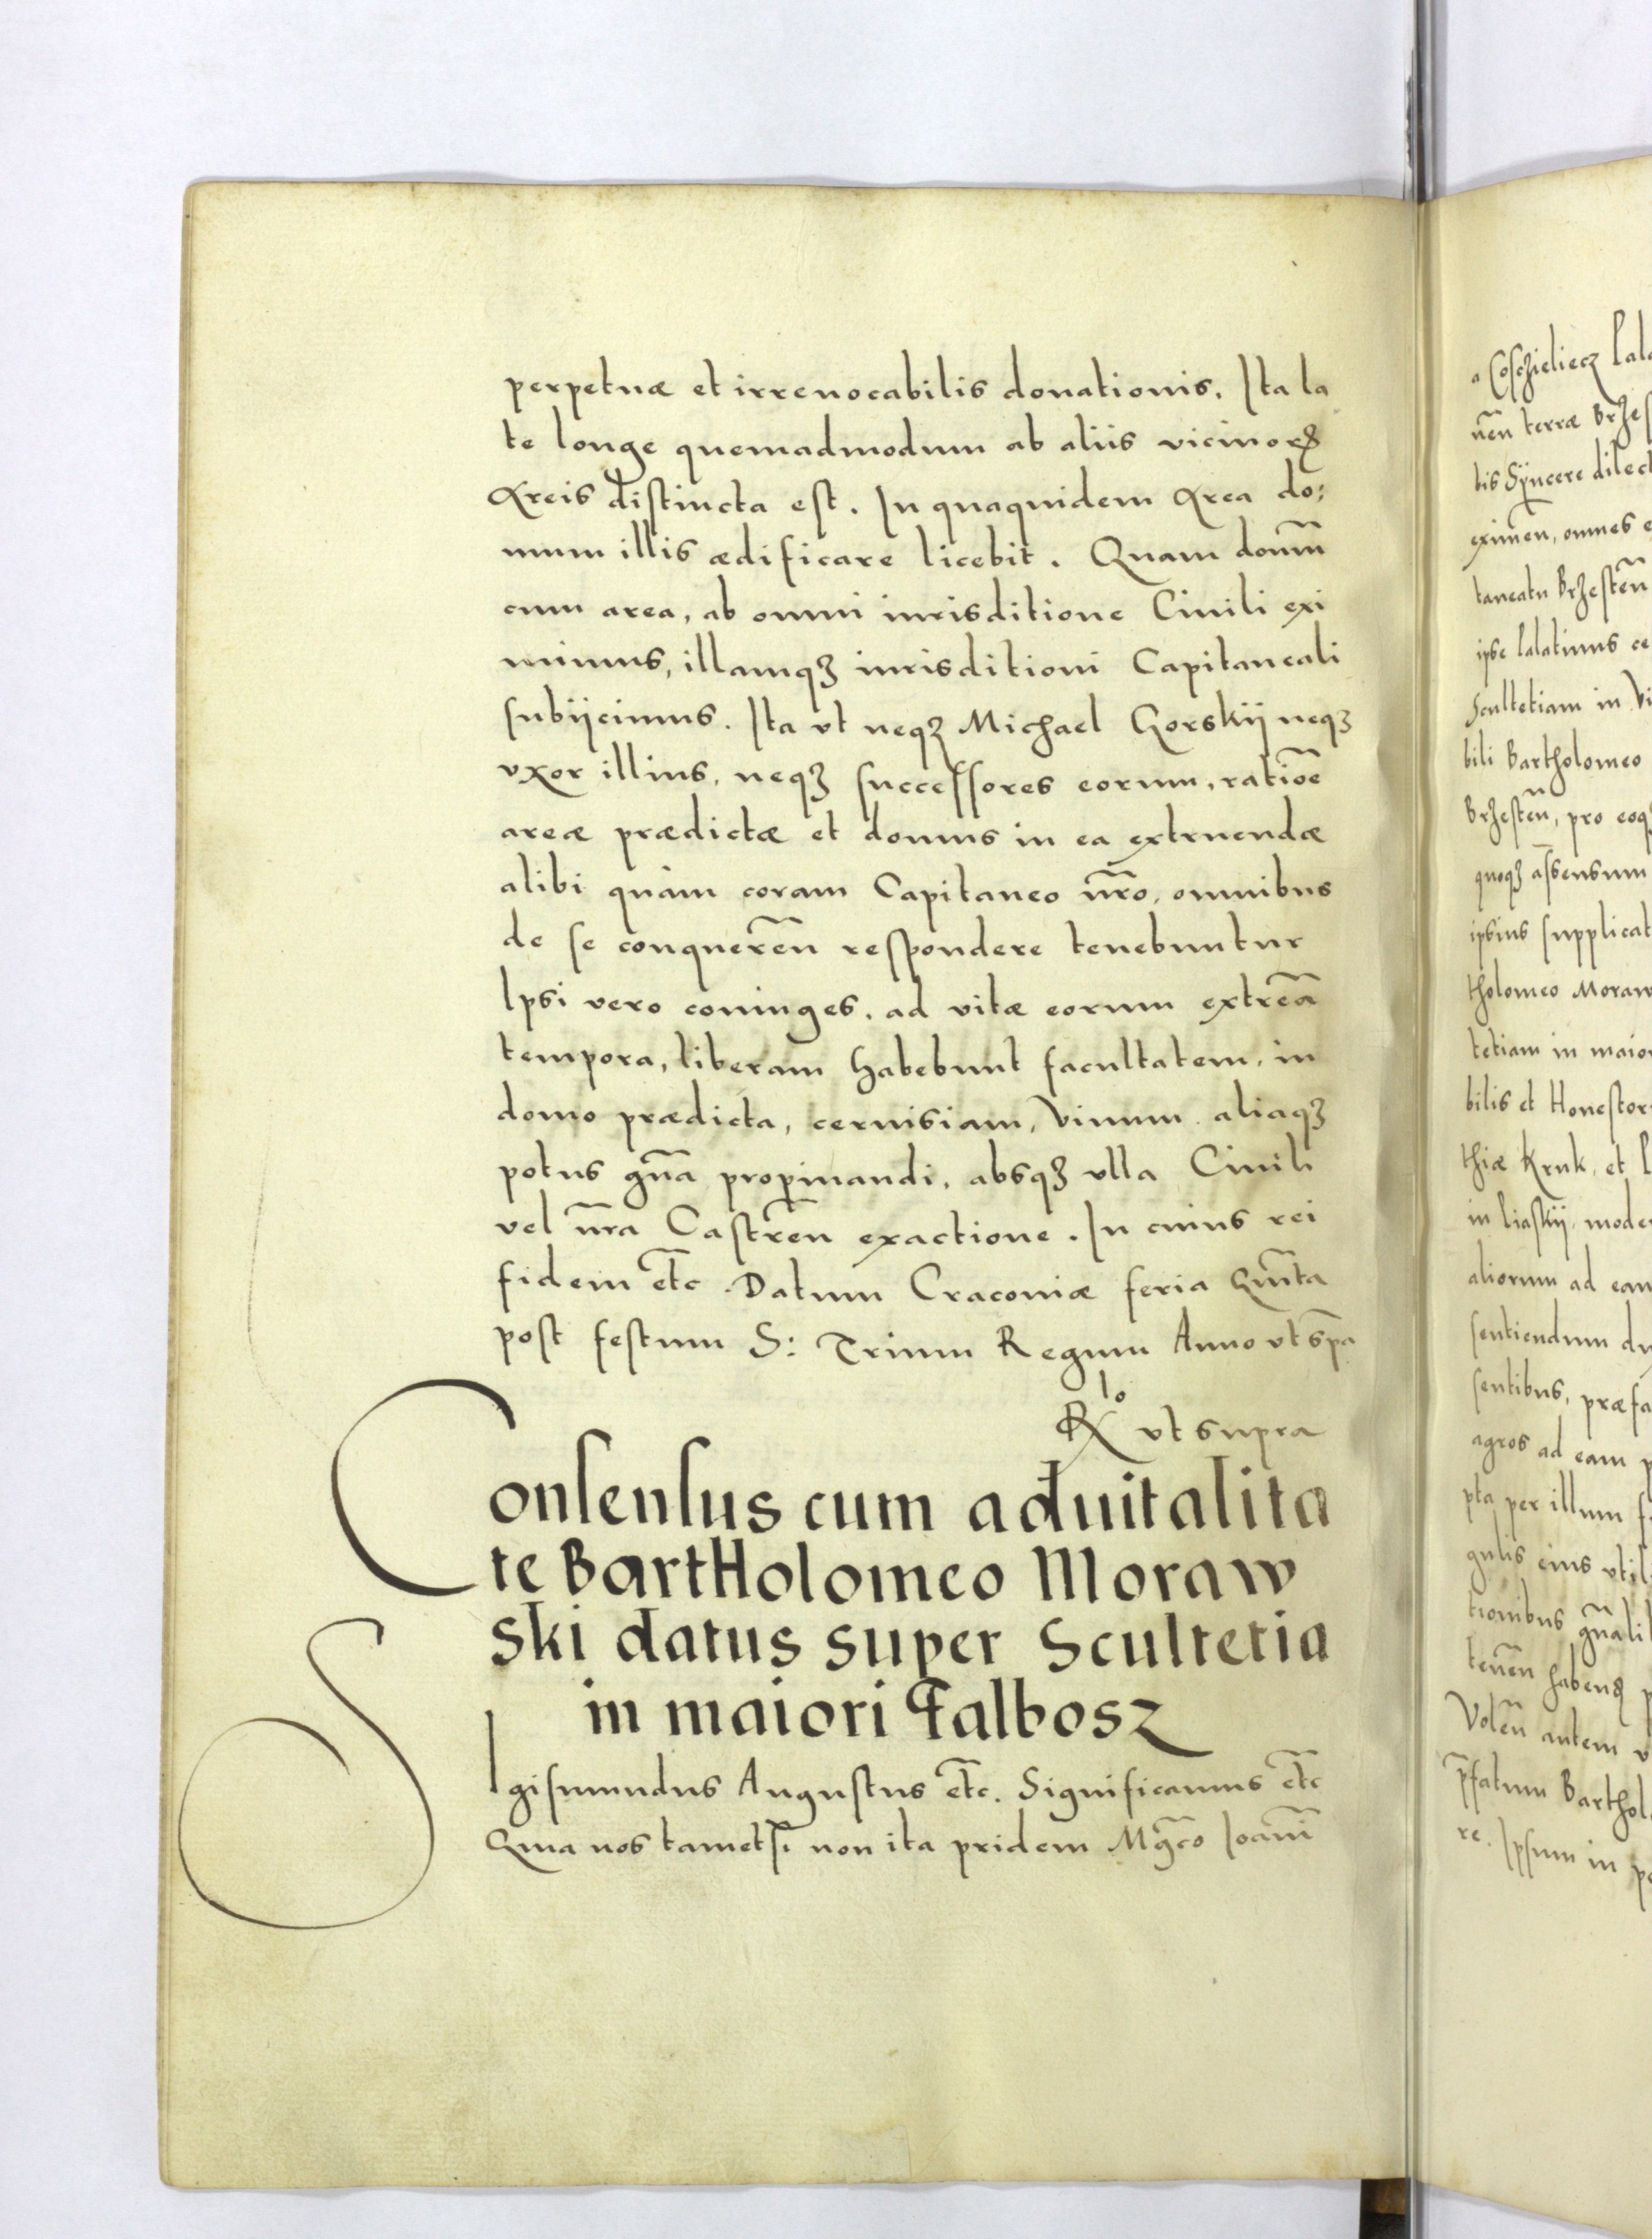 perpetuæ et irreuocabilis donationis. Ita la
te longe quemadmodum ab aliis vicinorꝝ
Areis distincta est. In quaquidem Area do:
mum illis ædificare licebit. Quam domū
cum area, ab omni iurisditione Ciuili exi
mimus, illamqꝫ iurisditioni Capitaneali
subijcimus. Ita vt neqꝫ Michael Gorskij neqꝫ
vxor illius, neqꝫ successores eorum, ratiōe
areæ prædictæ et domus in ea extruendæ
alibi quàm coram Capitaneo nr̄o, omnibus
de se conquerēn respondere tenebuntur
Ipsi vero coniuges, ad vitæ eorum extrēa
tempora, liberam habebunt facultatem, in
domo prædicta, ceruisiam, vinum aliaqꝫ
potus gn̄a propinandi, absqꝫ vlla Ciuili
vel nr̄a Castrēn exactione. In cuius rei
fidem etc̄ Datum Cracouiæ feria Qui̅ta
post festum S: Trium Regum Anno vt sp̄a
Rlo vt supra
Consensus cum aduitalita
te Bartholomeo Moraw
ski datus super Scultetia
in maiori Falbosz
Sigismundus Augustus etc̄. Significamus etc̄
Quia nos tametsi non ita pridem Mgc̄o Ioanī
a Coschieliecz Pala
nēn terræ Brzes
lis Syncere dilect
eximēn, omnes e
taneatu Brzestēn
ipse Palatinus ce
Scultetiam in Vi
bili Bartholomeo
Brzestēn, pro eoqꝫ
quoqꝫ assensum
ipsius supplicat
tholomeo Moraw
tetiam in maior
bilis et Honestor
thiæ Kruk, et P
in liaskij, moder
aliorum ad eam
sentiendum du
sentibus, præfa
agros ad eam p
pta per illum f
gulis eius vtil
tionibus gn̄alib
tenēn habenꝫ p
Volēn autem v
p̄fatum Barthol
re. Ipsum in pe